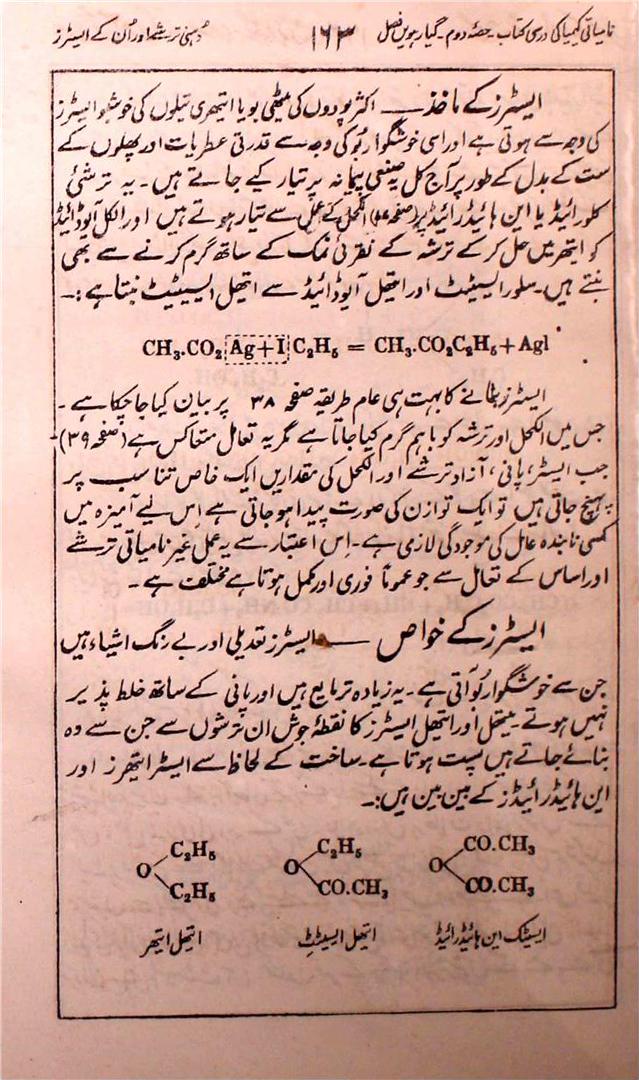 نامیاتی کیمیا کی درسی کتاب ۔ حصۂ دوم ۔ گیارہویں فصل ۱۶۳ دُہنی ترشے اور اُن کے ایسٹرز
ایسٹرز کے ماخذ ــــ اکثر پودوں کی میٹھی بو یا ایتھری تیلوں کی خوشبو ایسٹرز
کی وجہ سے ہوتی ہے اور اسی خوشگوار بُو کی وجہ سے قدرتی عطریات اور پھلوں کے
ست کے بدل کے طور پر آج کل صنعتی پیمانہ پر تیار کیے جاتے ہیں ۔ یہ ترشئی
کلورائیڈ یا این ہائیڈرائیڈ پر (صفحہ ۴۷) الکحل کے عمل سے تیار ہوتے ہیں اور الکل آیوڈائیڈ
کو ایتھر میں حل کر کے ترشہ کے نقرئی نمک کے ساتھ گرم کرنے سے بھی
بنتے ہیں ۔ سلور ایسیٹیٹ اور ایتھل آیوڈائیڈ سے ایتھل ایسیٹیٹ بنتا ہے :۔
CH₃.CO₂ Ag+I C₂H₅ = CH₃.CO₂C₂H₅+AgI
ایسٹرز بنانے کا بہت ہی عام طریقہ صفحہ ۳۸ پر بیان کیا جا چکا ہے ۔
جس میں الکحل اور ترشہ کو باہم گرم کیا جاتا ہے مگر یہ تعامل متعاکس ہے (صفحہ ۳۹)۔
جب ایسٹر، پانی، آزاد ترشے اور الکحل کی مقداریں ایک خاص تناسب پر
پہنچ جاتی ہیں تو ایک توازن کی صورت پیدا ہو جاتی ہے اِس لیے آمیزہ میں
کسی نابندہ عامل کی موجودگی لازمی ہے ۔ اِس اعتبار سے یہ عمل غیر نامیاتی ترشے
اور اساس کے تعامل سے جو عموماً فوری اور مکمل ہوتا ہے مختلف ہے ۔
ایسٹرز کے خواص ــــ ایسٹرز تعدیلی اور بے رنگ اشیاء ہیں
جن سے خوشگوار بُو آتی ہے ۔ یہ زیادہ تر مایع ہیں اور پانی کے ساتھ خلط پذیر
نہیں ہوتے ۔ میتھل اور ایتھل ایسٹرز کا نقطۂ جوش ان ترشوں سے جن سے وہ
بنائے جاتے ہیں پست ہوتا ہے ۔ ساخت کے لحاظ سے ایسٹر ایتھرز اور
این ہائیڈرائیڈز کے بین بین ہیں :۔
CO.CH₃ C₂H₅ C₂H₅
O O O
CO.CH₃ CO.CH₃ C₂H₅
ایسیٹک این ہائیڈرائیڈ ایتھل ایسیٹیٹ ایتھل ایتھر